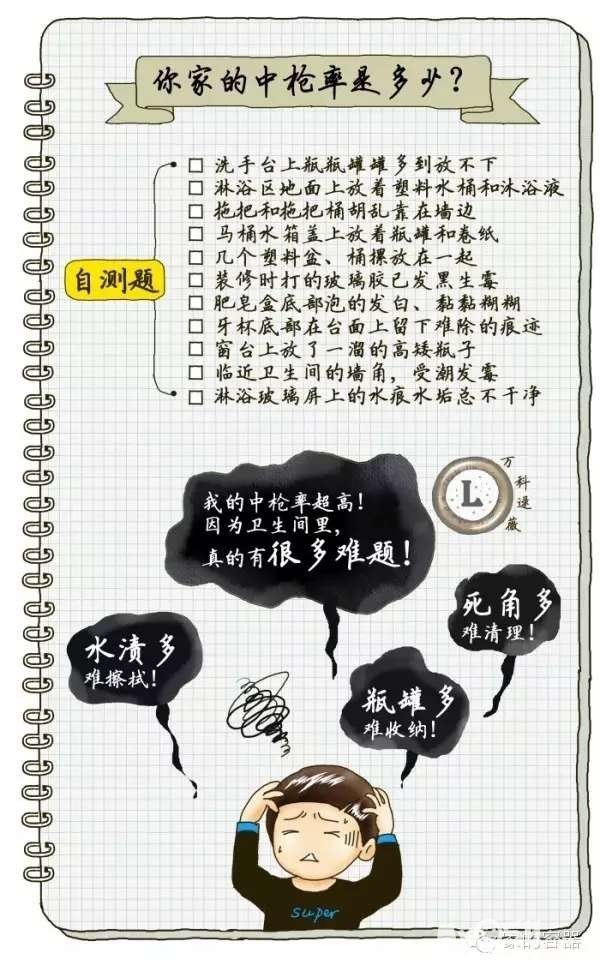 你家的中枪率是多少?
自测题
洗手台上瓶瓶罐罐多到放不下
淋浴区地面上放着塑料水桶和沐浴液
拖把和拖把桶胡乱靠在墙边
马桶水箱盖上放着瓶罐和卷纸
几个塑料盆、桶摞放在一起
装修时打的玻璃胶已发黑生霉
肥皂盒底部泡的发白、黏黏糊糊
牙杯底部在台面上留下难除的痕迹
窗台上放了一溜的高矮瓶子
临近卫生间的墙角,受潮发霉
淋浴玻璃屏上的水痕水垢总不干净
L
万科逯薇
我的中枪率超高!
因为卫生间里,
真的有很多难题!
死角多
难清理!
水渍多
难擦拭!
瓶罐多
难收纳!
super